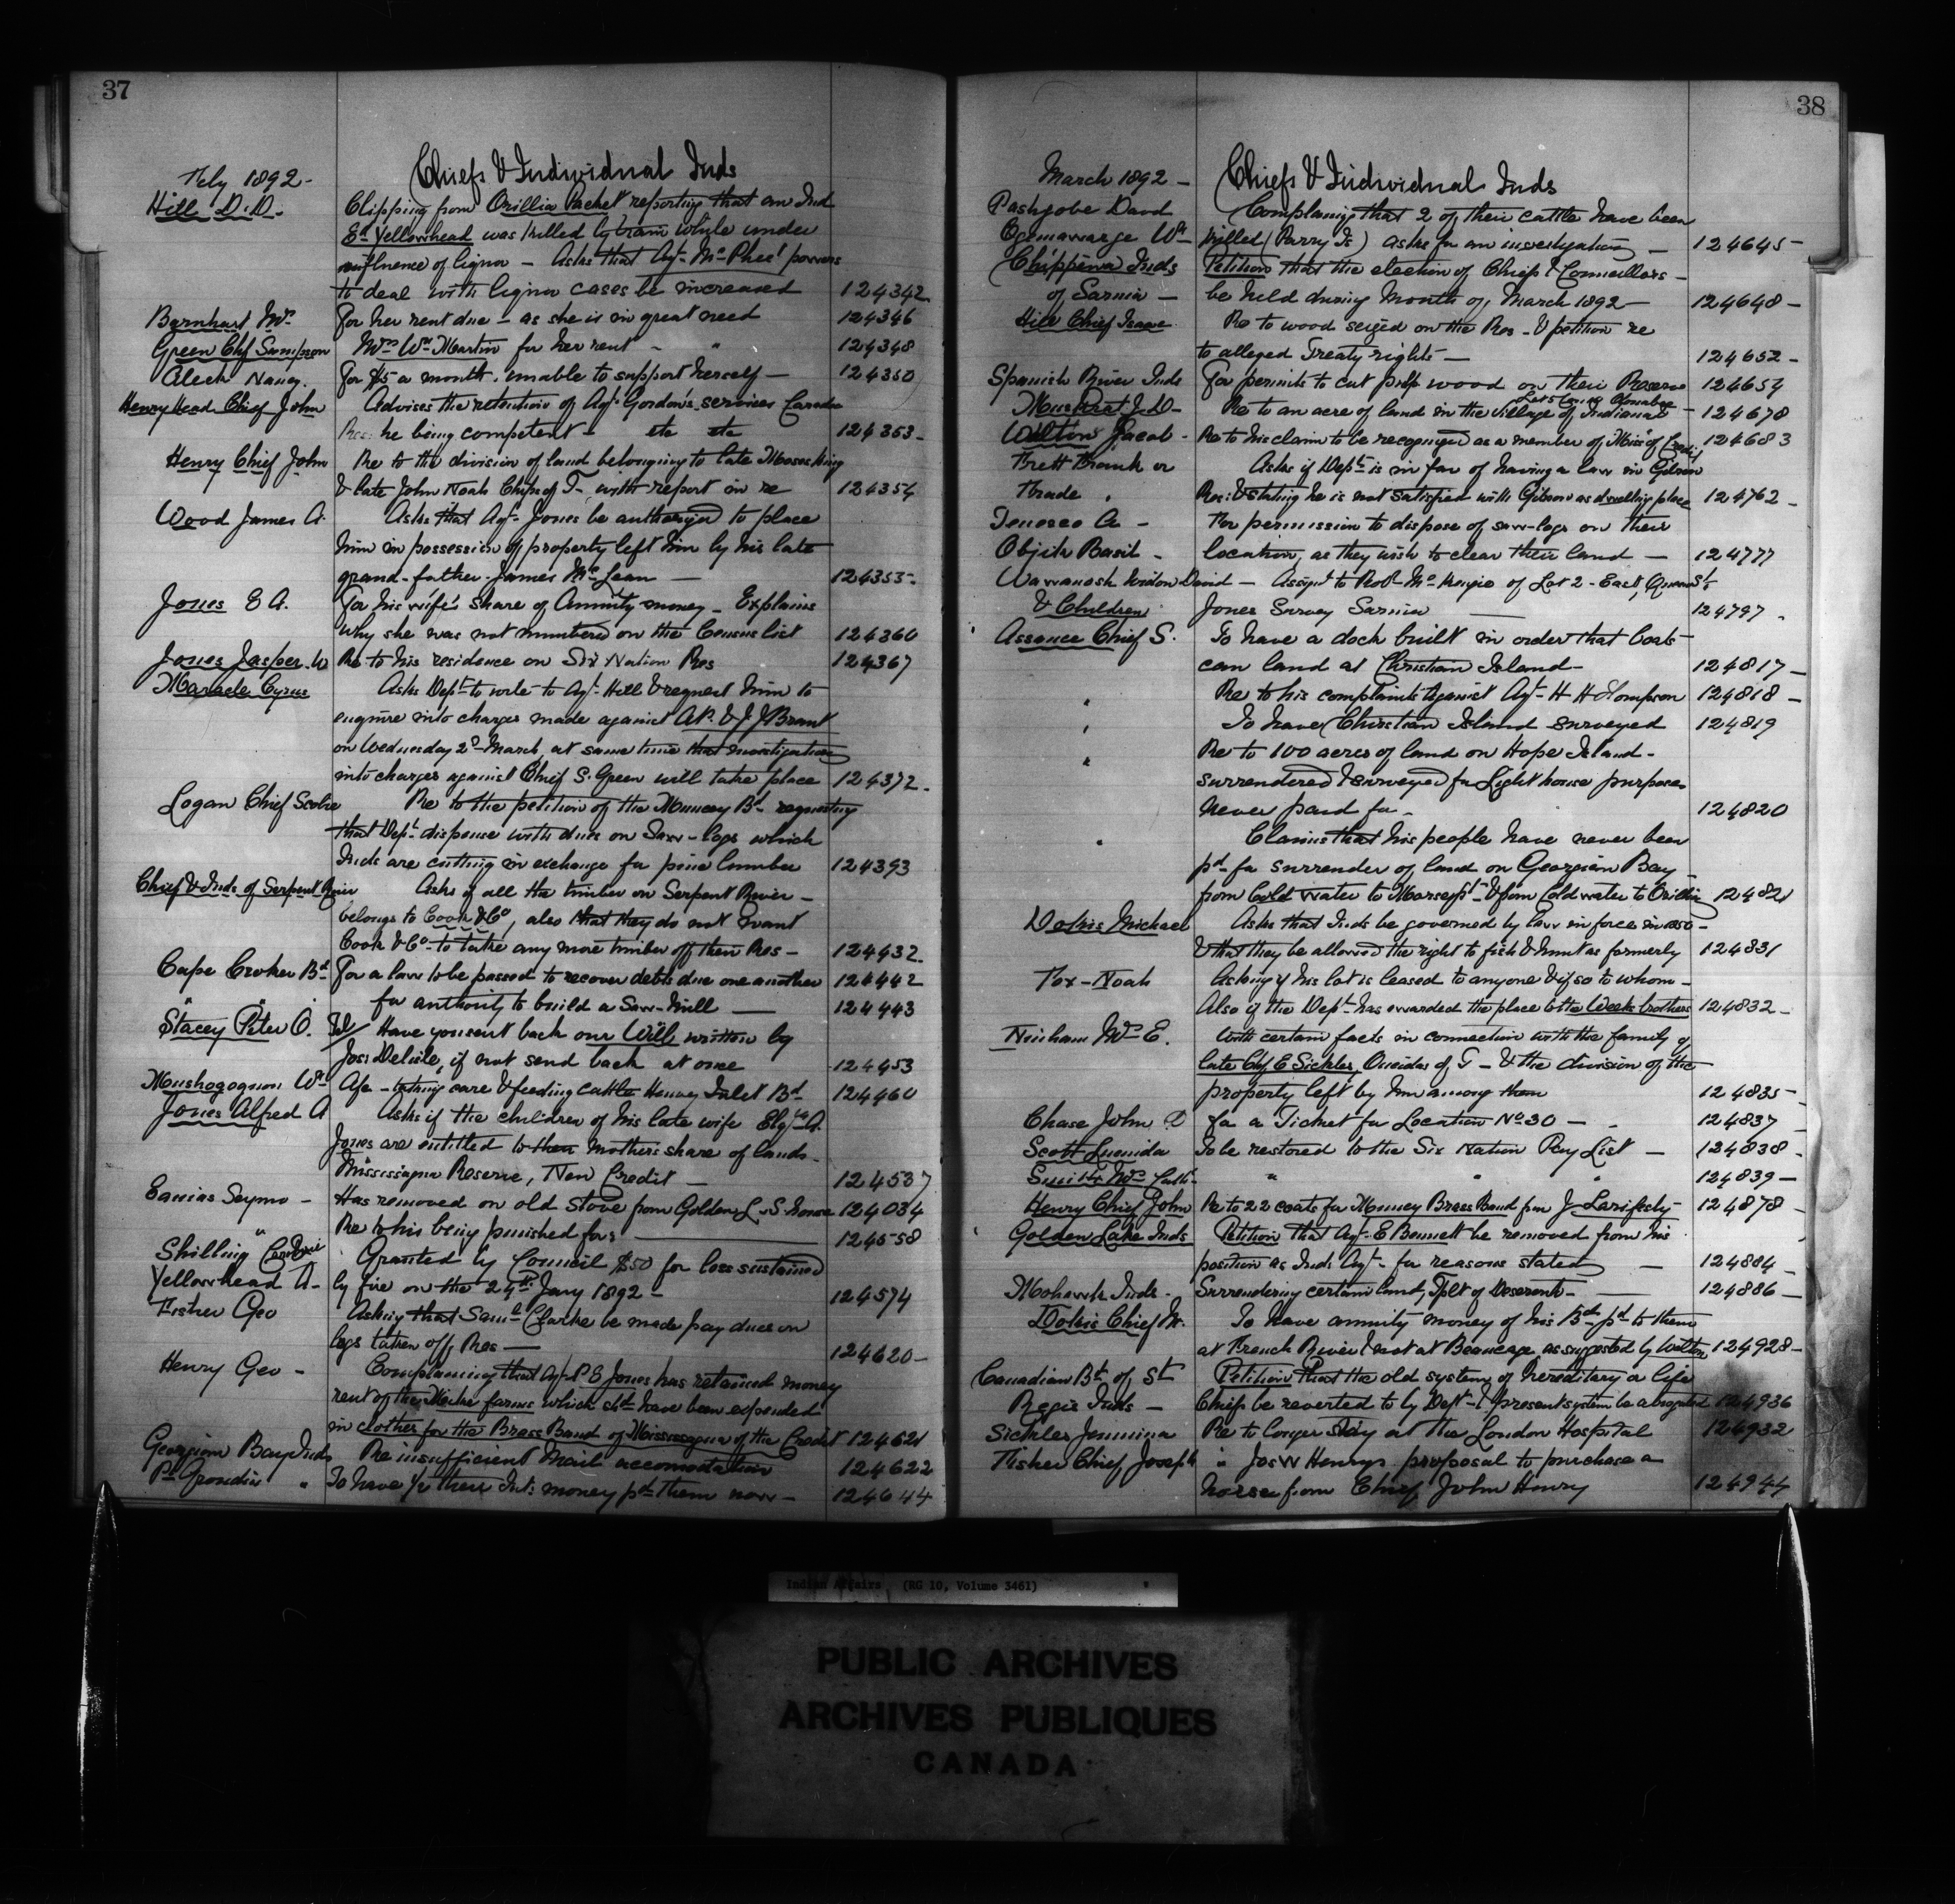 37
Feby 1892 - Chiefs & Individual Inds
Hill D.D. - Clipping from Orillia Packet reporting that an Ind
Ed Yellowhead was killed by train while under
influence of liquor - Asks that Agt McPhee's powers
to deal with liquor cases be increased 124342
Barnhart Mrs For her rent due - as she is in great need 124346
Green Chf Sampson Mrs Wm Martin for her rent - " 124348
Aleck Nancy. For $5 a month, unable to support herself - 124350
Henry Head Chief John Advises the retention of Agt Gordon's services
Res: he being competent - etc etc 124353 -
Henry Chief John Re to the division of land belonging to late Moses King
& late John Noah Chips of T - with report in re 124354
Wood James A. Asks that Agt Jones be authorized to place
him in possession of property left him by his late
grand-father James McLean - 124355 -
Jones E A. For his wife's share of Annuity money - Explains
why she was not numbered on the Census list 124360
Jones Jasper W Re to his residence on Six Nation Res 124367
Maracle Cyrus Asks Dept to write to Agt Hill & request him to
enquire into charges made against & J. J Brant
on Wednesday 2d March, at same time that investigation
into charges against Chief S. Green will take place 124372 -
Logan Chief Scobie Re to the petition of the Muncey Bd - requesting
that Dept dispense with dues on Saw-logs which
Inds are cutting in exchange for pine lumber 124393
Chief & Inds of Serpent River Asks if all the timber on Serpent River -
belongs to Cook & Co, also that they do not want
Cook & Co - to take any more timber off their Res - 124432
Cape Croker Bd For a law to be passed to recover debts due one another 124442
" " for authority to build a Saw-Mill - 124443
Stacey Peter O. Tel/ Have you sent back our Will written by
Jos: Delisle, if not send back at once 124453
Mushogogmon Wm A/c - taking care & feeding cattle Henvey Inlet Bd 124460
Jones Alfred A Asks if the children of his late wife Elizth A.
Jones are entitled to their mothers share of lands -
Mississagua Reserve, New Credit - 124537
Eanias Seymo - Has removed on old stove from Golden L. S. house 124034
" Re to his being punished for: 124558
Shilling Granted by Council $50 for loss sustained
Yellowhead A - by fire on the 24th Jany 1892 - 124574
Fisher Geo Asking that Saml Clarke be made pay dues on
logs taken off Res - 124620 -
Henry Geo - Complaining that Agt P E Jones has retained money
rent of the farms which shd have been expended
in clothes for the Brass Band of Mississagua of the Credit 124621
Georgian Bay Inds Re insufficient Mail accomodation 124622
Pt Grondin " To have 1/2 their Int: money pd them now - 124644
38
March 1892 - Chiefs & Individual Inds
Pashgobe David Complaining that 2 of their cattle have been
Ogemawarge Wm killed (Parry Is) asks for an investigation - 124645 -
Chippewa Inds Petition that the election of Chiefs & Councillors -
of Sarnia - be held during Month of March 1892 - 124648 -
Hill Chief Isaac Re to wood seized on the Res - & petition re
to alleged Treaty rights - 124652 -
Spanish River Inds For permits to cut pulp wood on their Reserve 124654
Muskrat J. D - Re to an acre of land in the village of Indiana - 124678
Walton Jacob - Re to his claim to be recognized as a member of Miss: of Credit 124683
Brett Frank or Asks if Dept is in fav of having a law in Gibson
Res: & stating he is not satisfied with Gibson as dwelling place 124762 -
Tenesco A - For permission to dispose of saw-logs on their
Objick Basil - location, as they wish to clear their land - 124777
Wawanosh Widow David - Assignt to Robt McKenzie of Lot 2 - East, Queen St
& Children Jones Survey Sarnia 124797
Assance Chief S. To have a dock built in order that boats
can land at Christian Island - 124817 -
" Re to his complaints against Agt - H H Thompson 124818 -
" To have Christian Island surveyed 124819
" Re to 100 acres of land on Hope Island -
surrendered & surveyed for Light house purposes
never paid for - 124820
" Claims that his people have never been
pd for surrender of land on Georgian Bay
from Cold water to & from Cold water to Orillia 124821
Dokis Michael Asks that Inds be governed by law in force in 1850 -
& that they be allowed the right to fish & hunt as formerly 124831
Fox - Noah Asking if his lot is leased to anyone & if so to whom -
Also if the Dept has awarded the place to the Weeks brothers 124832 -
Ninham Mrs E. With certain facts in connection with the family of
late Chf E Sickles, Oneidas of T - & the division of the
property left by him among them 124835 -
Chase John D for a Ticket for Location No 30 - 124837
Scott Lucinda To be restored to the Six Nation Pay List - 124838 -
Smith Mrs Cath - " " " 124839 -
Henry Chief John Re to 22 coats for Muncey Brass Band from J 124878
Golden Lake Inds Petition that Agt E Bennett be removed from his
position as Ind: Agt - for reasons stated - 124884 -
Mohawk Inds - Surrendering certain land, Tplt of Deseronto - 124886 -
Dokis Chief M. To have annuity money of his Bd - pd to them
at French River & not at Beaucage as suggested by Walton 124928 -
Canadian Bd of St Petition that the old system of hereditary or life
Regis Inds - Chiefs be reverted to by Dept - & present system be abrogated 124936
Sickles Jemima Re to longer stay at the London Hospital 124932
Fisher Chief Joseph " Jos W Henrys proposal to purchase a
horse from Chief John Henry 124944
Indian Affairs (RG 10, Volume 3461)
PUBLIC ARCHIVES
ARCHIVES PUBLIQUES
CANADA